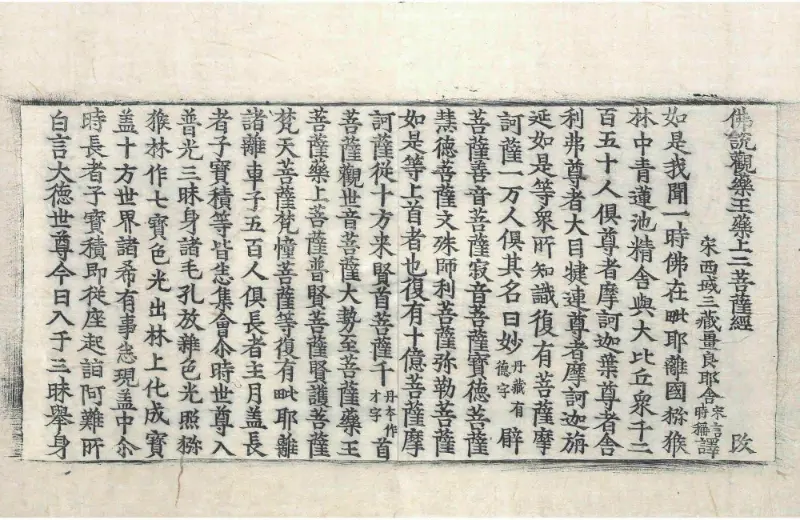 佛說觀藥王藥上二菩薩經 改
宋西域三藏畺良耶舍宋言時稱譯
如是我聞一時佛在毗耶離國猕猴
林中青蓮池精舍與大比丘衆千二
百五十人俱尊者摩訶迦葉尊者舍
利弗尊者大目揵連尊者摩訶迦旃
延如是等衆所知識復有菩薩摩
訶薩一万人俱其名曰妙丹藏有德字辟
菩薩善音菩薩寂音菩薩寶德菩薩
慧德菩薩文殊師利菩薩弥勒菩薩
如是等上首者也復有十億菩薩摩
訶薩從十方来賢首菩薩千丹本作才字首
菩薩觀世音菩薩大勢至菩薩藥王
菩薩藥上菩薩普賢菩薩賢護菩薩
梵天菩薩梵幢菩薩等復有毗耶離
諸離車子五百人俱長者主月盖長
者子寶積等皆悉集會尒時世尊入
普光三昧身諸毛孔放雜色光照猕
猴林作七寶色光出林上化成寶
盖十方世界諸希有事悉現盖中尒
時長者子寶積即從座起詣阿難所
白言大德世尊今日入于三昧舉身